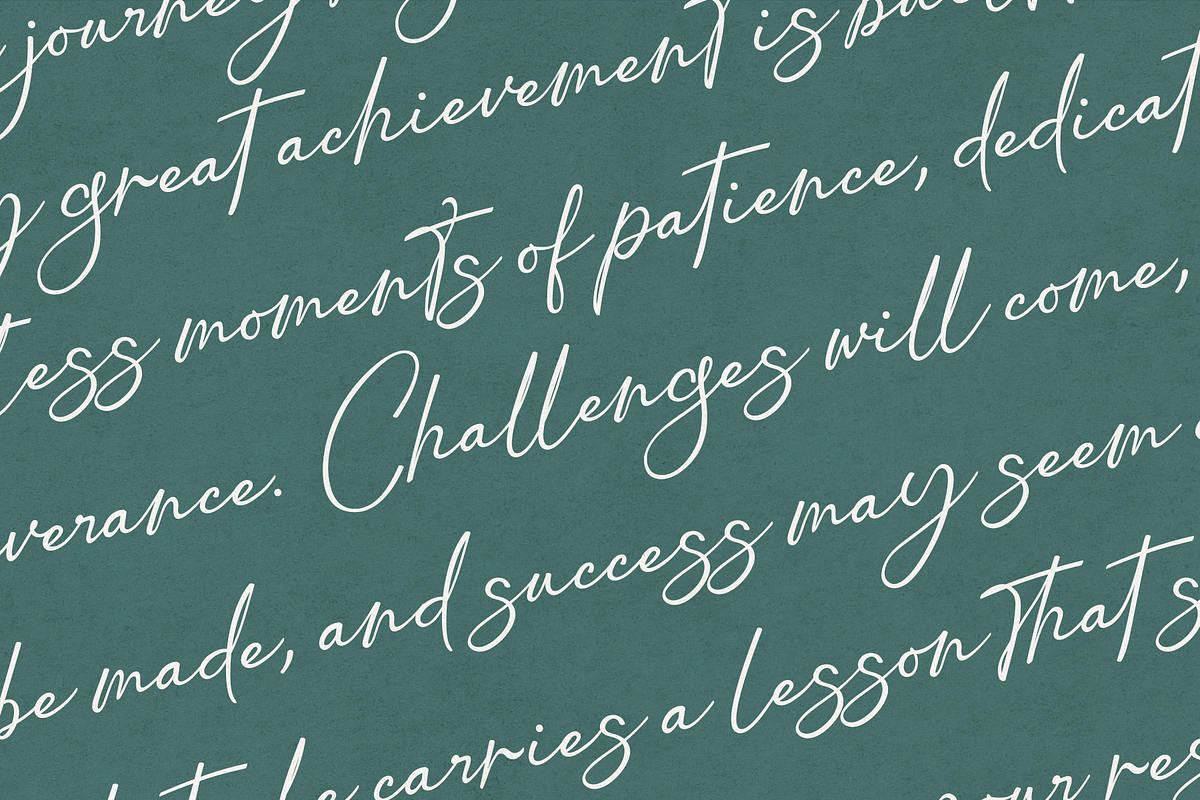 journey
great achievement is
moments of patience,
Challenges will come,
be made, and success may seem
carries a lesson that